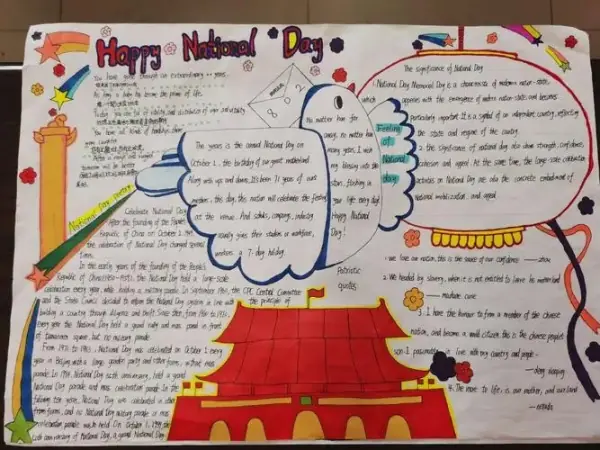 Happy National Day
You have gone through an extraordinary years
As from a baby to become the prime of life.
Today you are full of vitality and
You have all kinds of hardships
National Day poetry
802
The years is the annual National Day on
October 1, the birthday of our great motherland
Along with ups and downs, It's been 71 years of our
motherr, this day, this nation will celebrate the festival
at the venue. And schools, company, industry
usually gives their students or workforce,
workers a 7-day holiday.
No matter how
away, no matter how
many years, I wish
my blessing into the
star, flashing in
your life every day!
Happy National
Day!
Feeling
of
National
day
The significance of National Day
1. National Day Memorial Day is a characteristics of modern nation-state,
which appears with the emergence of modern nation-state, and becomes
particularly important. It is a symbol of an independent country, reflecting
the state and regime of the country.
2. the significances of national day also show strength, confidence,
cohesion and appeal. At the same time, the large-scale celebration
activities on National Day are also the concrete embodiment of
national mobilization and appeal.
Celebrate National Day
After the founding of the People's
Republic of China on October 1, 1949,
the celebration of National Day changed several
times.
In the early years of the founding of the People's
Republic of China (1950-1959), the National Day held a large-scale
celebration every year, while holding a military parade. In September 1960, the CPC Central Committee
and the State Council decided to reform the National Day system in line with the principle of
building a country through diligence and thrift. Since then, from 1960 to 1970,
every year the National Day held a grand rally and mass parade in front
of Tiananmen square, but no military parade.
From 1971 to 1983, National Day was celebrated on October 1 every
year in Beijing with a large garden party and other forms, without mass
parade. In 1984, National Day 35th anniversary, held a grand
National Day parade and mass celebration parade. In the
following ten years, National Day was celebrated in other
forms, and no National Day military parade or mass
celebration parade was held. On October 1, 1999, the
50th anniversary of National Day, a grand National Day
Patriotic
quotes
1. we love our nation, this is the source of our confidence
2. We headed by slavery, when it is not entitled to leave his motherland
— madame curie
3. I have the honour to from a member of the chinese
nation, and become a world citizen. this is the chinese people's
son. I passionately love with my country and people.
— deng xiaoping
4. The more to life, is our mother, and our land